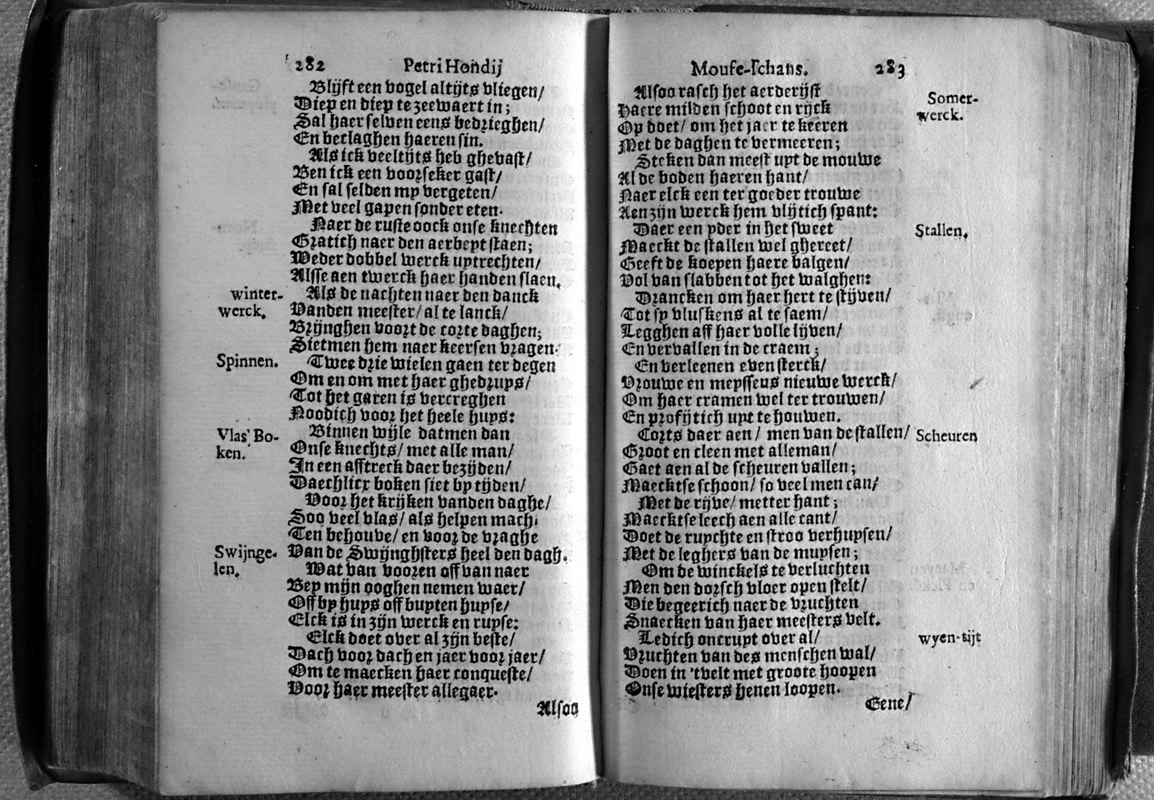 282 Petri Hondij
Blijft een vogel altijts vliegen/
Diep en diep te zeewaert in;
Sal haer selven eens bedrieghen/
En beclaghen haeren sin.
Als ick veeltijts heb ghevast/
Ben ick een voorseker gast/
En sal selden my vergeten/
Met veel gapen sonder eten.
Naer de ruste oock onse knechten
Gratich naer den aerbeyt staen;
Weder dobbel werck uptrechten/
Alsse aen twerck haer handen slaen.
winter-
werck.
Als de nachten naer den danck
Vanden meester/ al te lanck/
Brijnghen voort de corte daghen;
Sietmen hem naer keersen vragen.
Spinnen.
Twee drie wielen gaen ter degen
Om en om met haer ghedruys/
Tot het garen is vercreghen
Noodich voor het heele huys:
Vlas Bo-
ken.
Binnen wijle datmen dan
Onse knechts/ met alle man/
In een afftreck daer bezijden/
Daechlicx boken siet by tyden/
Voor het krijken vanden daghe/
Soo veel vlas/ als helpen mach
Ten behouve/ en voor de vraghe
Swijnge-
len.
Van de Swijnghsters heel den dagh.
Wat van vooren off van naer
Bey mijn ooghen nemen waer/
Off by huys off buyten huyse/
Elck is in zijn werck en ruyse:
Elck doet over al zijn beste/
Dach voor dach en jaer voor jaer/
Om te maecken haer conqueste/
Voor haer meester allegaer.
Alsoo
Moufe-schans. 283
Alsoo rasch het aerderijst
Haere milden schoot en rijck
Somer-
werck.
Op doet/ om het jaer te keeren
Met de daghen te vermeeren;
Steken dan meest upt de mouwe
Al de boden haeren hant/
Naer elck een ter goeder trouwe
Aen zijn werck hem vlijtich spant:
Stallen.
Daer een yder in het sweet
Maeckt de stallen wel ghereet/
Geeft de koeyen haere balgen/
Vol van slabben tot het walghen:
Drancken om haer hert te stijven/
Tot sy vluskens al te saem/
Legghen aff haer volle lijven/
En vervallen in de craem;
En verleenen even sterck/
Vrouwe en meyssens nieuwe werck/
Om haer cramen wel ter trouwen/
En profijtich uyt te houwen.
Scheuren
Corts daer aen/ men van de stallen/
Groot en cleen met alleman/
Gaet aen al de scheuren vallen;
Maecktse schoon/ so veel men can/
Met de rijve/ metter hant;
Maecktse leech aen alle cant/
Doet de ruychte en stroo verhuysen/
Met de leghers van de muysen;
Om de winckels te verluchten
Men den dorsch vloer open stelt/
Die begeerich naer de vruchten
Snaecken van haer meesters velt.
wyen-tijt
Ledich oncruyt over al/
Vruchten van des menschen wal/
Doen in 'tvelt met groote hoopen
Onse wiesters henen loopen.
Gene/